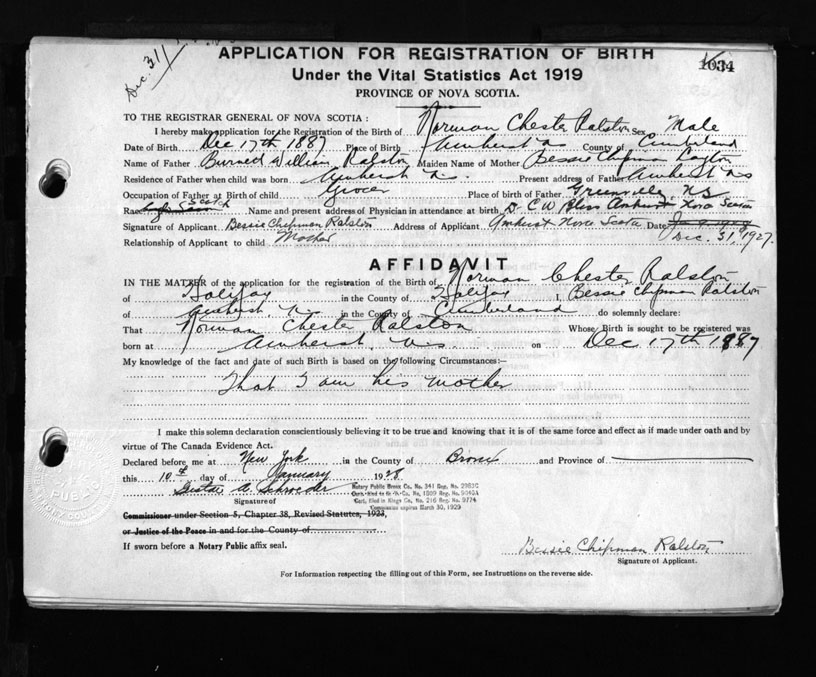 Dec. 31/
APPLICATION FOR REGISTRATION OF BIRTH
1034
Under the Vital Statistics Act 1919
PROVINCE OF NOVA SCOTIA.
TO THE REGISTRAR GENERAL OF NOVA SCOTIA :
I hereby make application for the Registration of the Birth of Norman Chester Ralston Sex Male
Date of Birth Dec 17th 1887 Place of Birth Amherst NS County of Cumberland
Name of Father William Ralston Maiden Name of Mother Bessie Chipman
Residence of Father when child was born Amherst N.S. Present address of Father Amherst NS
Occupation of Father at Birth of child Grocer Place of birth of Father Greenville NS
Race Scotch Name and present address of Physician in attendance at birth Dr. C W Bliss Amherst Nova Scotia
Signature of Applicant Bessie Chipman Ralston Address of Applicant Amherst Nova Scotia Date Dec. 31, 1927.
Relationship of Applicant to child Mother
AFFIDAVIT
IN THE MATTER of the application for the registration of the Birth of Norman Chester Ralston
of Halifax in the County of Halifax I, Bessie Chipman Ralston
of Amherst, N.S in the County of Cumberland do solemnly declare:
That Norman Chester Ralston Whose Birth is sought to be registered was
born at Amherst N.S on Dec 17th 1887
My knowledge of the fact and date of such Birth is based on the following Circumstances:—
That I am his mother
I make this solemn declaration conscientiously believing it to be true and knowing that it is of the same force and effect as if made under oath and by
virtue of The Canada Evidence Act.
Declared before me at New York in the County of Bronx and Province of
this 10th day of January 1928
Gustav A. Schroeder
Notary Public Bronx Co. No. 341 Reg. No. 2983C
Cert. filed in Kings Co. No. 216 Reg. No. 9774
Commission expires March 30, 1929
Signature of
Commissioner under Section 5, Chapter 38, Revised Statutes, 1923,
or Justice of the Peace in and for the County of
If sworn before a Notary Public affix seal.
Bessie Chipman Ralston
Signature of Applicant.
For Information respecting the filling out of this Form, see Instructions on the reverse side.